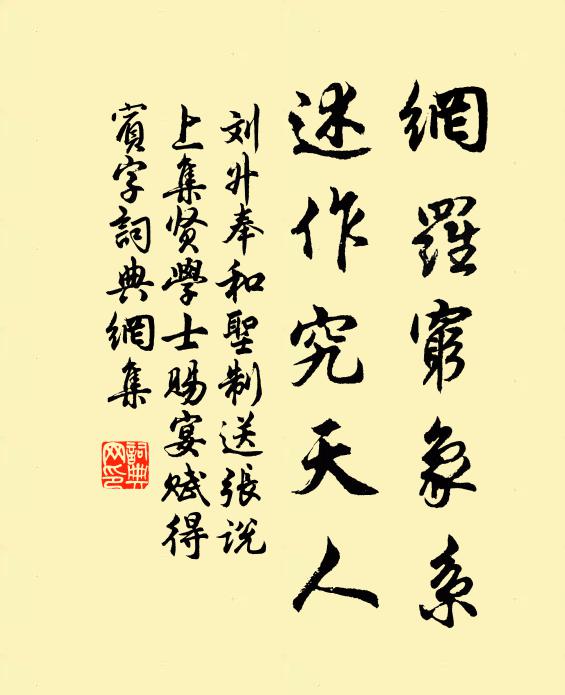 網羅窮象系
述作究天人
刘升奉和聖制送張说
上集贤學士赐宴赋得
賓字詞典網集
詞典网印